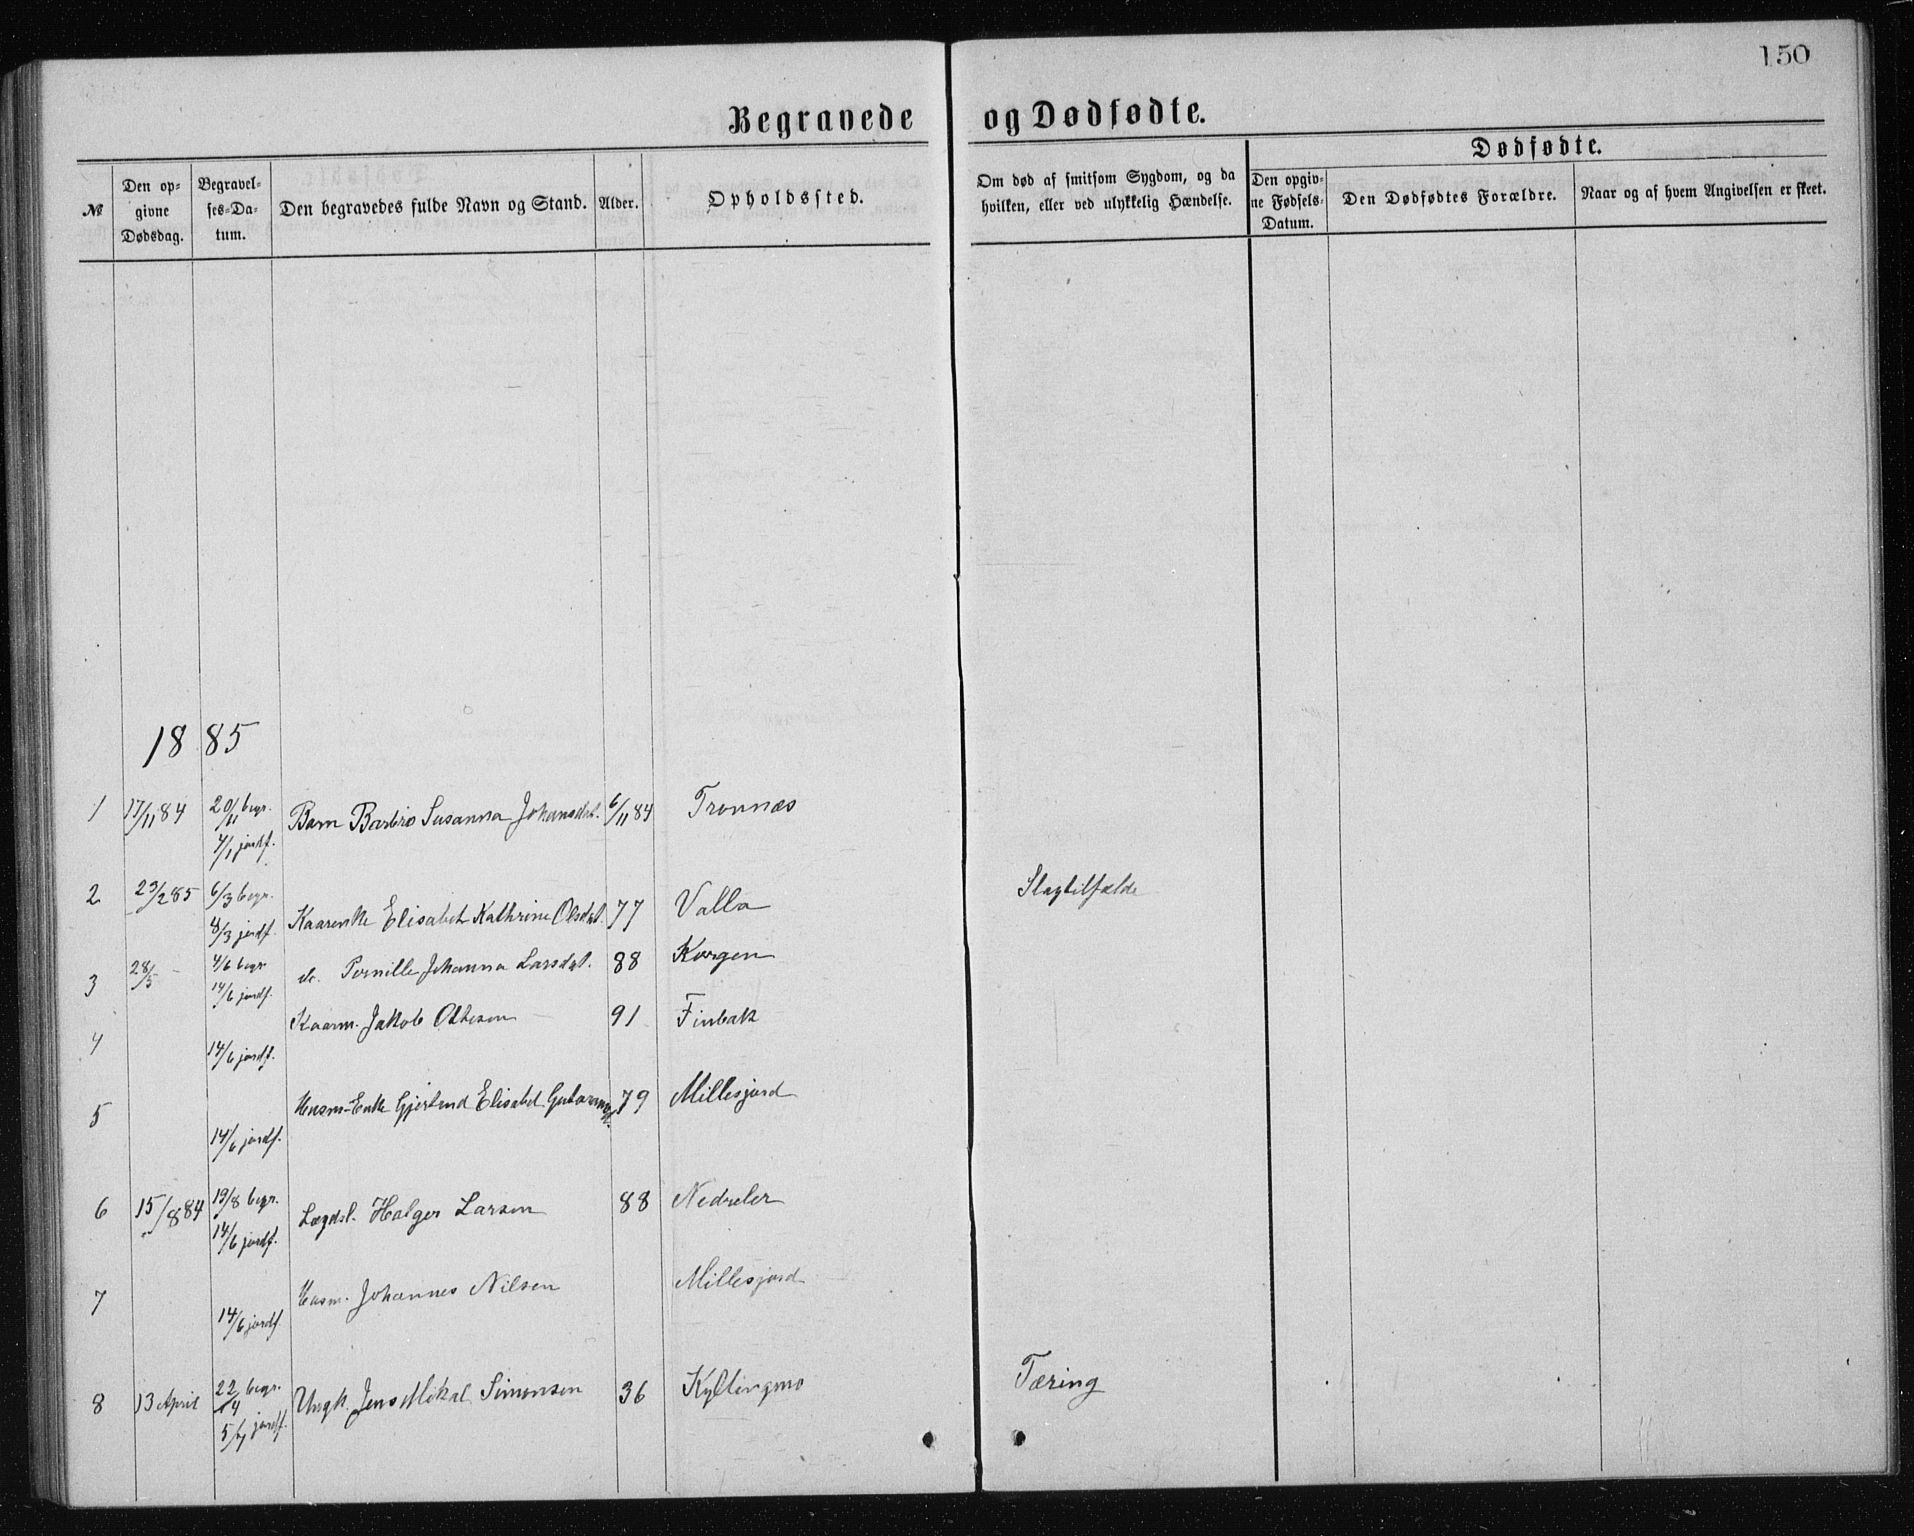 150
Begravede og Dødfødte.
Dødfødte.
№
Den op-
givne
Dødsdag.
Begravel-
ses-Da-
tum.
Den begravedes fulde Navn og Stand.
Alder.
Opholdssted.
Om død af smitsom Sygdom, og da
hvilken, eller ved ulykkelig Hændelse.
Den opgiv-
ne Fødsels-
Datum.
Den Dødfødtes Forældre.
Naar og af hvem Angivelsen er skeet.
1885
1 17/11 84 20/11 begr. Barn Barbro Susanna Johansdat. 6/11 84 Tronnæs
4/1 jordf.
2 23/2 85 6/3 begr. Kaarenke Elisabet Kathrine Olsdat. 77 Valla Slagtilfælde
8/3 jordf.
3 28/5 - 4/6 begr. do. Pernille Johanna Larsdat. 88 Korgen
14/6 jordf.
4 14/6 jordf. Kaarm. Jakob Ottesen 91 Finbak
5 14/6 jordf. Husm-Enke Gjertrud Elisabet 79 Millesjord
6 15/8 84 19/8 begr. Lægdsl. Holger Larsen 88 Nedreler
14/6 jordf.
7 14/6 jordf. Husm. Johannes Nilsen Millesjord
8 13 April 22/4 begr. Ungk. Jens Mikal Simonsen 36 Kyllingmo Tæring
5/7 jordf.